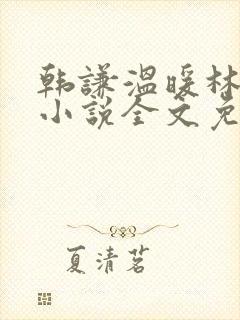 韩谦温暖林
小说全文免
夏清茗